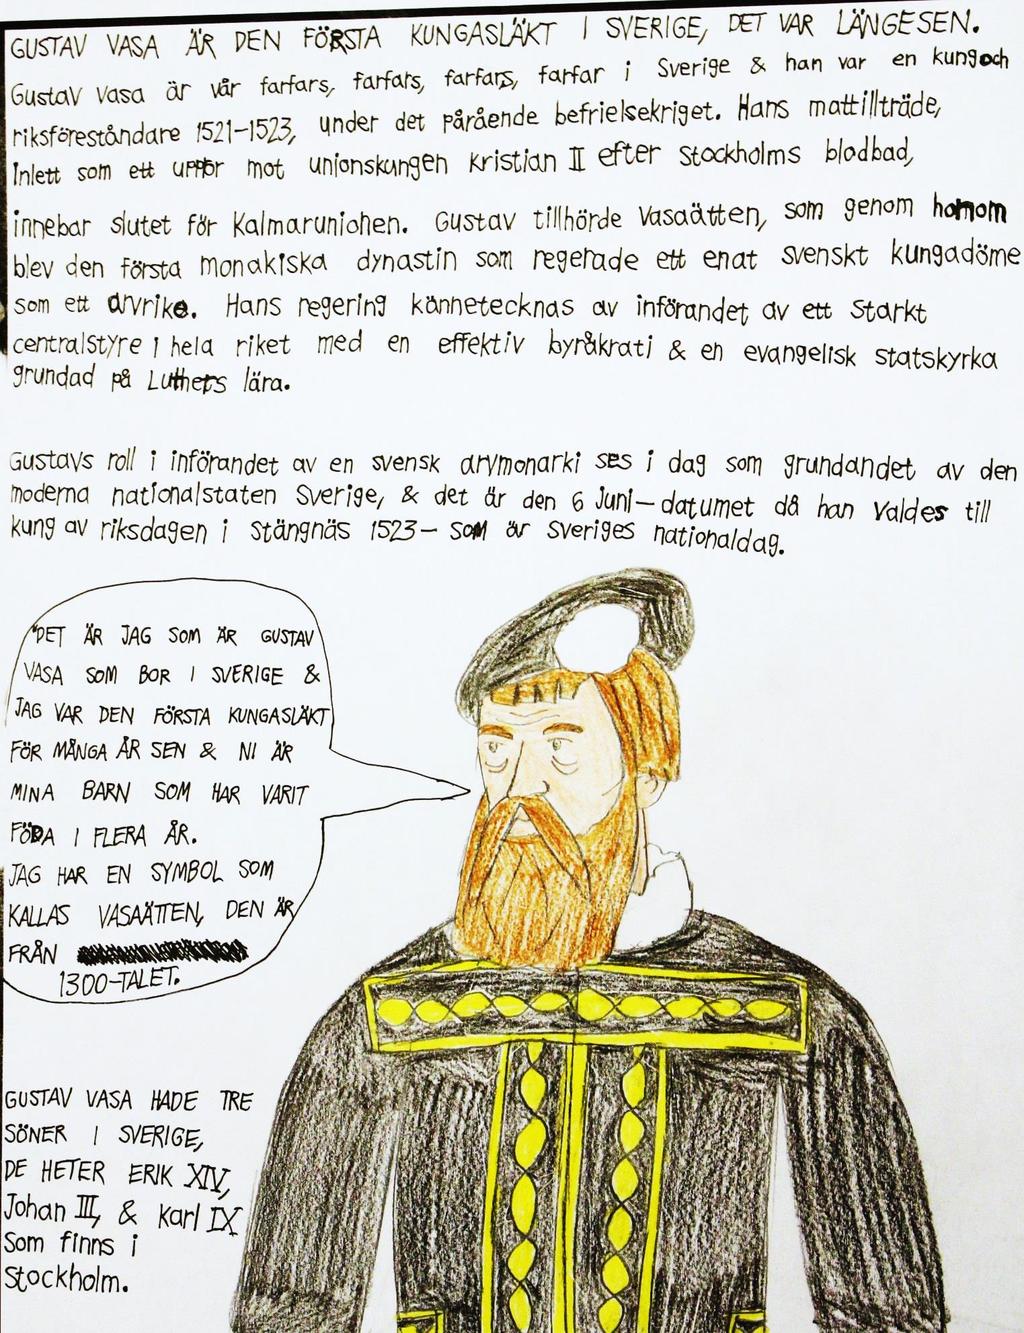 GUSTAV VASA ÄR DEN FÖRSTA KUNGASLÄKT I SVERIGE, DET VAR LÄNGESEN.
Gustav Vasa är vår farfars, farfars, farfars, farfar i Sverige & han var en kung och
riksföreståndare 1521-1523, under det pårående befrielsekriget. Hans mattillträde,
Inlett som ett uppör mot unionskungen Kristian II efter Stockholms blodbad,
innebar slutet för Kalmarunionen. Gustav tillhörde Vasaätten, som genom honom
blev den första monakiska dynastin som regerade ett enat svenskt kungadöme
som ett arvrike. Hans regering kännetecknas av införandet av ett starkt
centralstyre i hela riket med en effektiv byråkrati & en evangelisk statskyrka
grundad på Luthers lära.
Gustavs roll i införandet av en svensk arvmonarki ses i dag som grundandet av den
moderna nationalstaten Sverige, & det är den 6 Juni-datumet då han valdes till
kung av riksdagen i Stängnäs 1523- som är Sveriges nationaldag.
"DET ÄR JAG SOM ÄR GUSTAV
VASA SOM BOR I SVERIGE &
JAG VAR DEN FÖRSTA KUNGASLÄKT
FÖR MÅNGA ÅR SEN & NI ÄR
MINA BARN SOM HAR VARIT
FÖDA I FLERA ÅR.
JAG HAR EN SYMBOL SOM
KALLAS VASAÄTTEN, DEN ÄR
FRÅN
1300-TALET.
GUSTAV VASA HADE TRE
SÖNER I SVERIGE,
DE HETER ERIK XIV,
Johan III, & Karl IX
Som finns i
Stockholm.